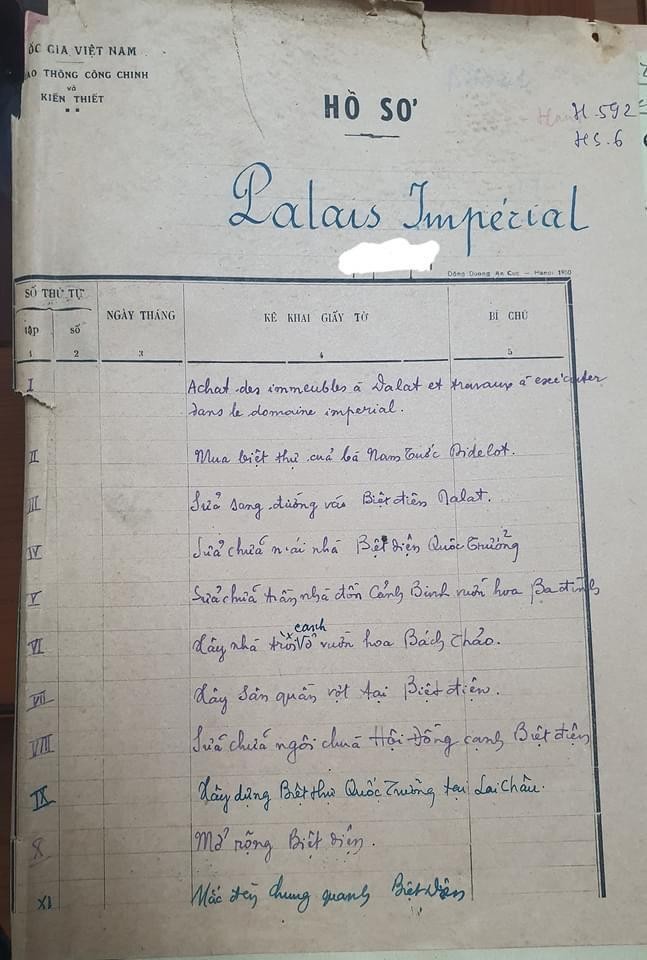 ỐC GIA VIỆT NAM
AO THÔNG CÔNG CHINH
và
KIẾN THIẾT
HỒ SƠ
H.592
HS.6
Palais Impérial
Dông Duong An Cuc — Hanoi 1950
SỐ THỨ TỰ
NGÀY THÁNG
KÊ KHAI GIẤY TỜ
BỊ CHÚ
tập
số
1
2
3
4
5
I
Achat des immeubles à Dalat et travaux à exécuter
dans le domaine imperial.
II
Mua biệt thự của bà Nam Tước Didelot.
III
Sửa sang đường vào Biệt điện Dalat.
IV
Sửa chữa mái nhà Biệt điện Quốc Trưởng
V
Sửa chữa trần nhà đồn Cảnh Binh vườn hoa Ba đình
VI
canh
Xây nhà vườn hoa Bách Thảo.
VII
Xây sân quần vợt tại Biệt điện.
VIII
Sửa chữa ngôi chùa Hội Đồng cạnh Biệt điện
IX
Xây dựng Biệt thự Quốc Trưởng tại Lai Châu.
X
Mở rộng Biệt điện.
XI
Mắc đèn chung quanh Biệt điện